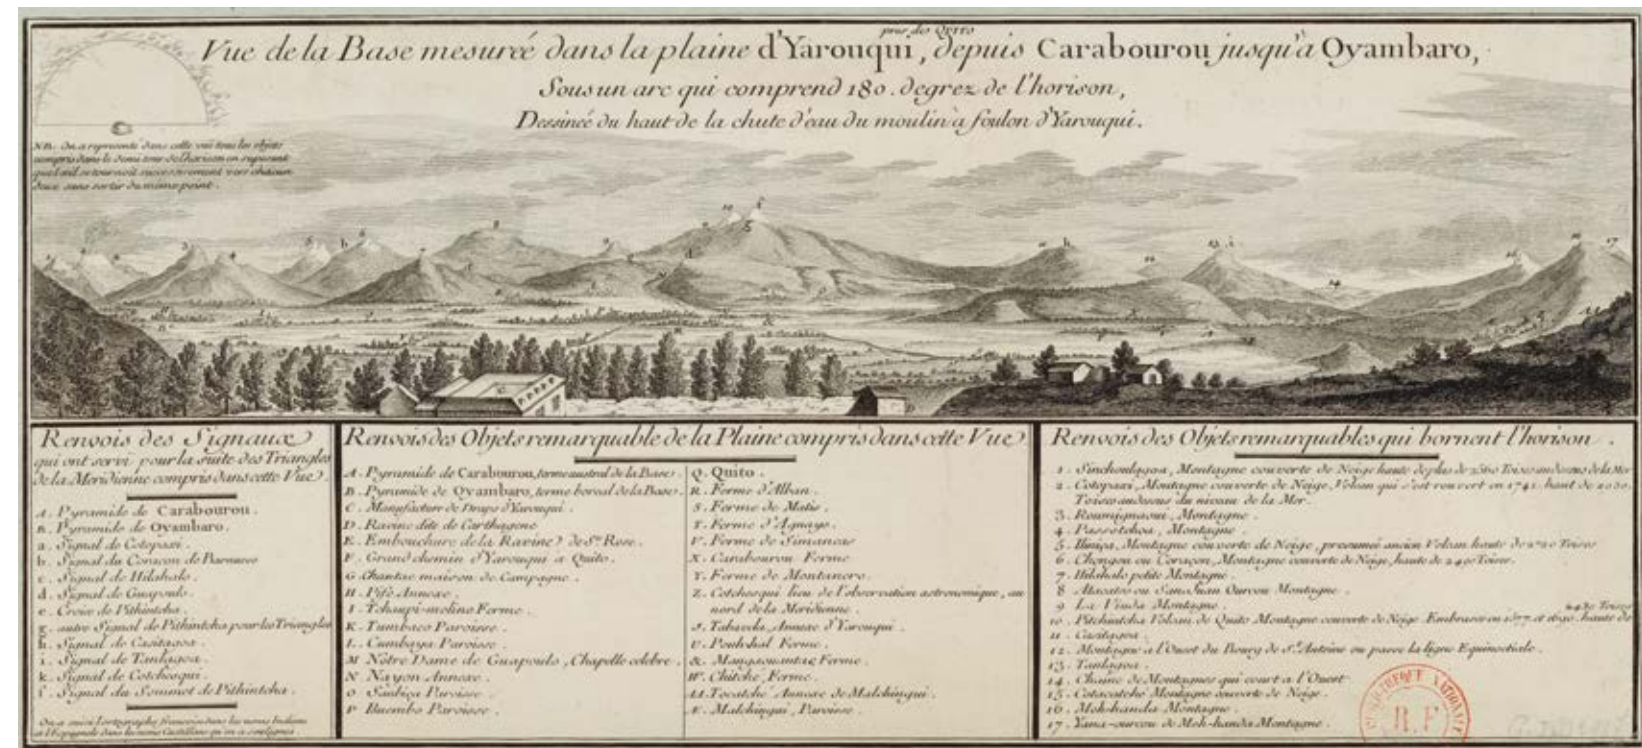 près de Quito
Vue de la Base mesurée dans la plaine d'Yarouqui, depuis Carabourou jusqu'à Oyambaro,
Sous un arc qui comprend 180. degrez de l'horison,
Dessinée du haut de la chute d'eau du moulin à foulon d'Yarouqui.
NB. On a representé dans cette vüe tous les objets
compris dans le demi tour de l'horison en suposant
que l'œil se tournoit successivement vers chacun
deux sans sortir du même point.
Renvois des Signaux
qui ont servi pour la suite des Triangles
de la Meridienne compris dans cette Vue.
A. Pyramide de Carabourou.
B. Pyramide de Oyambaro.
a. Signal de Cotopaxi.
b. Signal du Coraçon de Barnuevo
c. Signal de Hilahalo.
d. Signal de Guapoulo.
e. Croix de Pithintcha.
g. autre Signal de Pithintcha pour les Triangles
h. Signal de Casitagoa.
i. Signal de Tanlagoa.
k. Signal de Cotchesqui.
f. Signal du Sommet de Pithintcha.
On a suivi l'ortographe francoise dans les noms Indiens
et l'Espagnole dans les noms Castillans qu'on a soulignés
Renvois des Objets remarquable de la Plaine compris dans cette Vue
A. Pyramide de Carabourou, terme austral de la Base.
B. Pyramide de Oyambaro, terme boreal de la Base.
C. Manufacture de Draps d'Yarouqui.
D. Ravine dite de Carthagene
E. Embouchure de la Ravine de Ste. Rose.
F. Grand chemin d'Yarouqui a Quito.
G. Chantac maison de Campagne.
H. Pifo Annexe.
I. Tchaupi-molino Ferme.
K. Tumbaco Paroisse.
L. Cumbaya Paroisse.
M Nôtre Dame de Guapoulo, Chapelle celebre.
N Nayon Annexe.
O Sanbiça Paroisse.
P Buembo Paroisse.
Q. Quito.
R. Ferme d'Alban.
S. Ferme de Matis.
T. Ferme d'Aguayo.
V. Ferme de Simancas
X. Carabourou Ferme
Y. Ferme de Montanero.
Z. Cotchesqui lieu de l'observation astronomique, au
nord de la Meridienne.
Tabavela, Annexe d'Yarouqui.
Ferme.
&. Ferme.
W. Chitche, Ferme.
AA. Tocatche Annexe de Malchingui.
Malchingui, Paroisse.
Renvois des Objets remarquables qui bornent l'horison.
1. Sinchoulagoa, Montagne couverte de Neige haute de plus de 2560 Toises au dessus de la Mer
2. Cotopaxi, Montagne couverte de Neige, Volcan qui s'est rouvert en 1742. haut de
Toises au dessus du niveau de la Mer.
3. Roumignaoui, Montagne.
4. Passotchoa, Montagne.
5. Iliniça, Montagne couverte de Neige, presumée ancien Volcan haute de 2720 Toises
6. Chongon ou Coraçon, Montagne couverte de Neige, haute de 2400 Toises.
7. Hilahalo petite Montagne
8 Atacatço ou San Juan Ourcou Montagne.
9 La Viuda Montagne.
2430 Toises
10. Pitchintcha Volcan de Quito Montagne couverte de Neige. Embrasée en 1577. et 1690. haute de
11. Casitagoa.
12. Montagne a l'Ouest du Bourg de St. Antoine ou passe la ligne Equinoctiale.
13. Tanlagoa.
14. Chaine de Montagnes qui court a l'Ouest
15. Cotacatche Montagne couverte de Neige.
16. Moh-handa Montagne.
17. Yana-ourcou de Moh-handa Montagne.
R.F